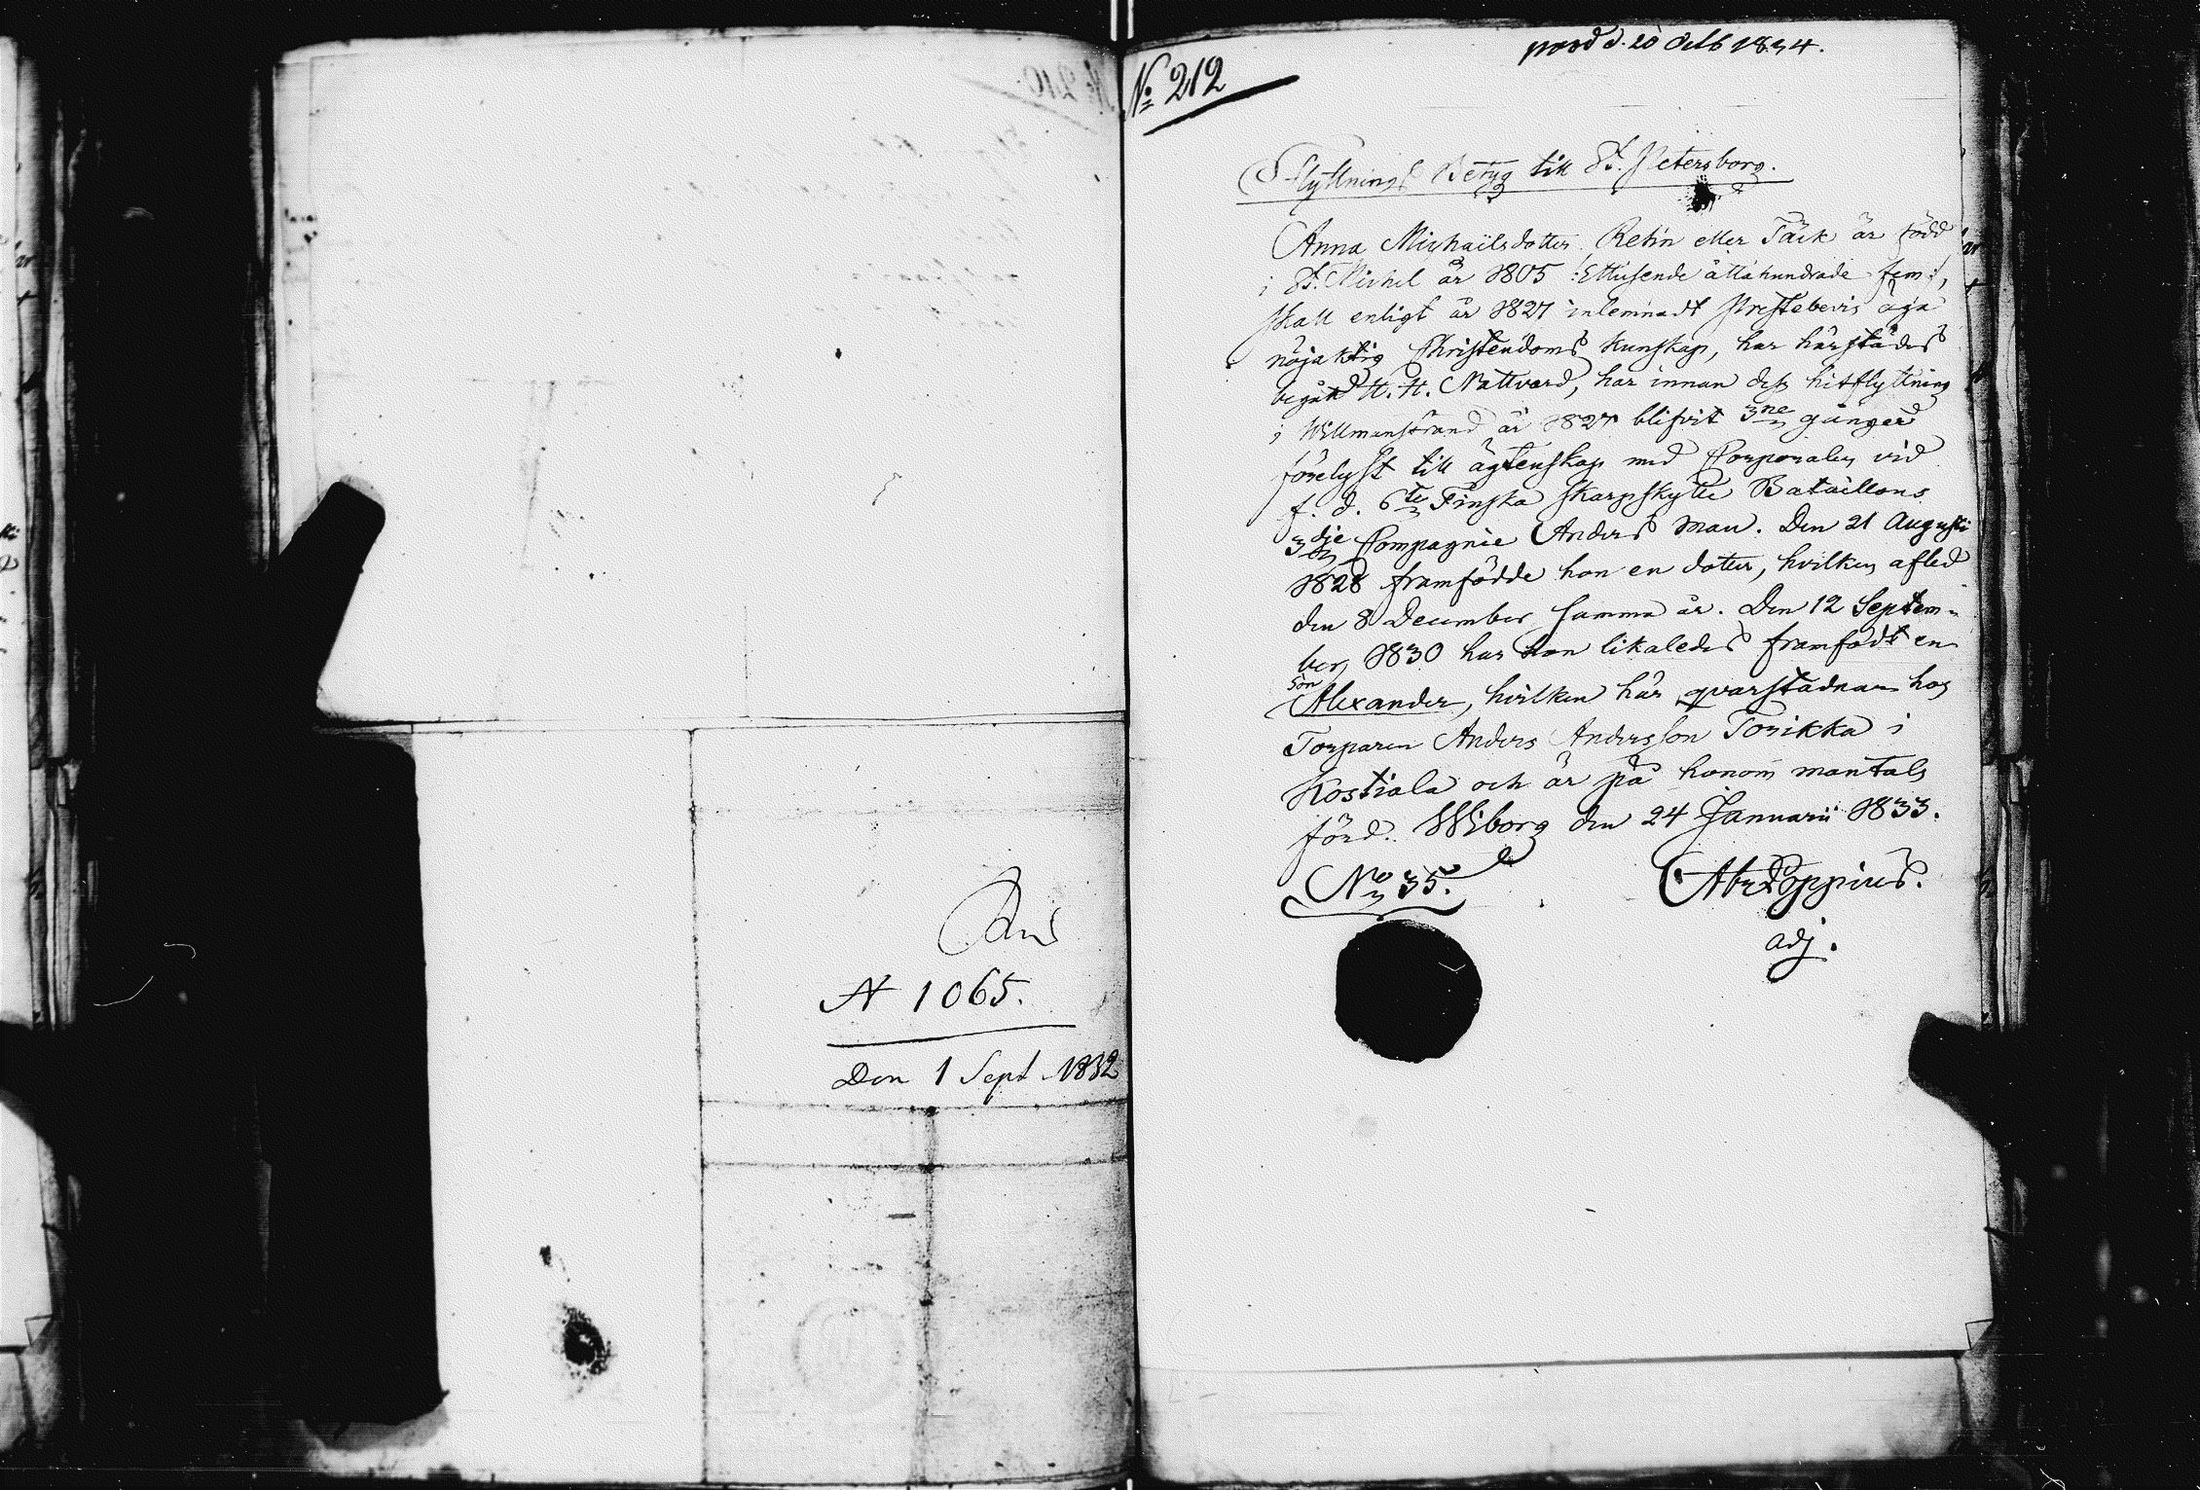 A 1065.
Den 1 Sept 1832
prod d. 20 Octb 1834.
No 212
Flyttnings Betyg till St. Petersborg.
Anna Michaelsdotter Rehn eller Täck är född
i St. Michel år 1805 /:Ettusende åttahundrade fem:/,
skall enligt år 1827 inlemnadt Prestebevis äga
nöjaktig Christendoms kunskap, har härstädes
begådt H. H. Nattvard, har innan dess hitflyttning
i Willmanstrand år 1827 blifvit 3ne gånger
förelyst till ägtenskap med Corporalen vid
f. d. 6te Finska Skarpskytte Bataillons
3dje Compagnie Anders Man. Den 21 Augusti
1828 framfödde hon en dotter, hvilken afled
den 8 December samma år. Den 12 Septem-
ber 1830 har hon likaledes framfödt en
son
Alexander, hvilken här qvarstadnar hos
Torparen Anders Andersson Torikka i
Kostiala och är på honom mantals
förd. Wiborg den 24 Januarii 1833.
No 35.
Abr Poppius.
adj.